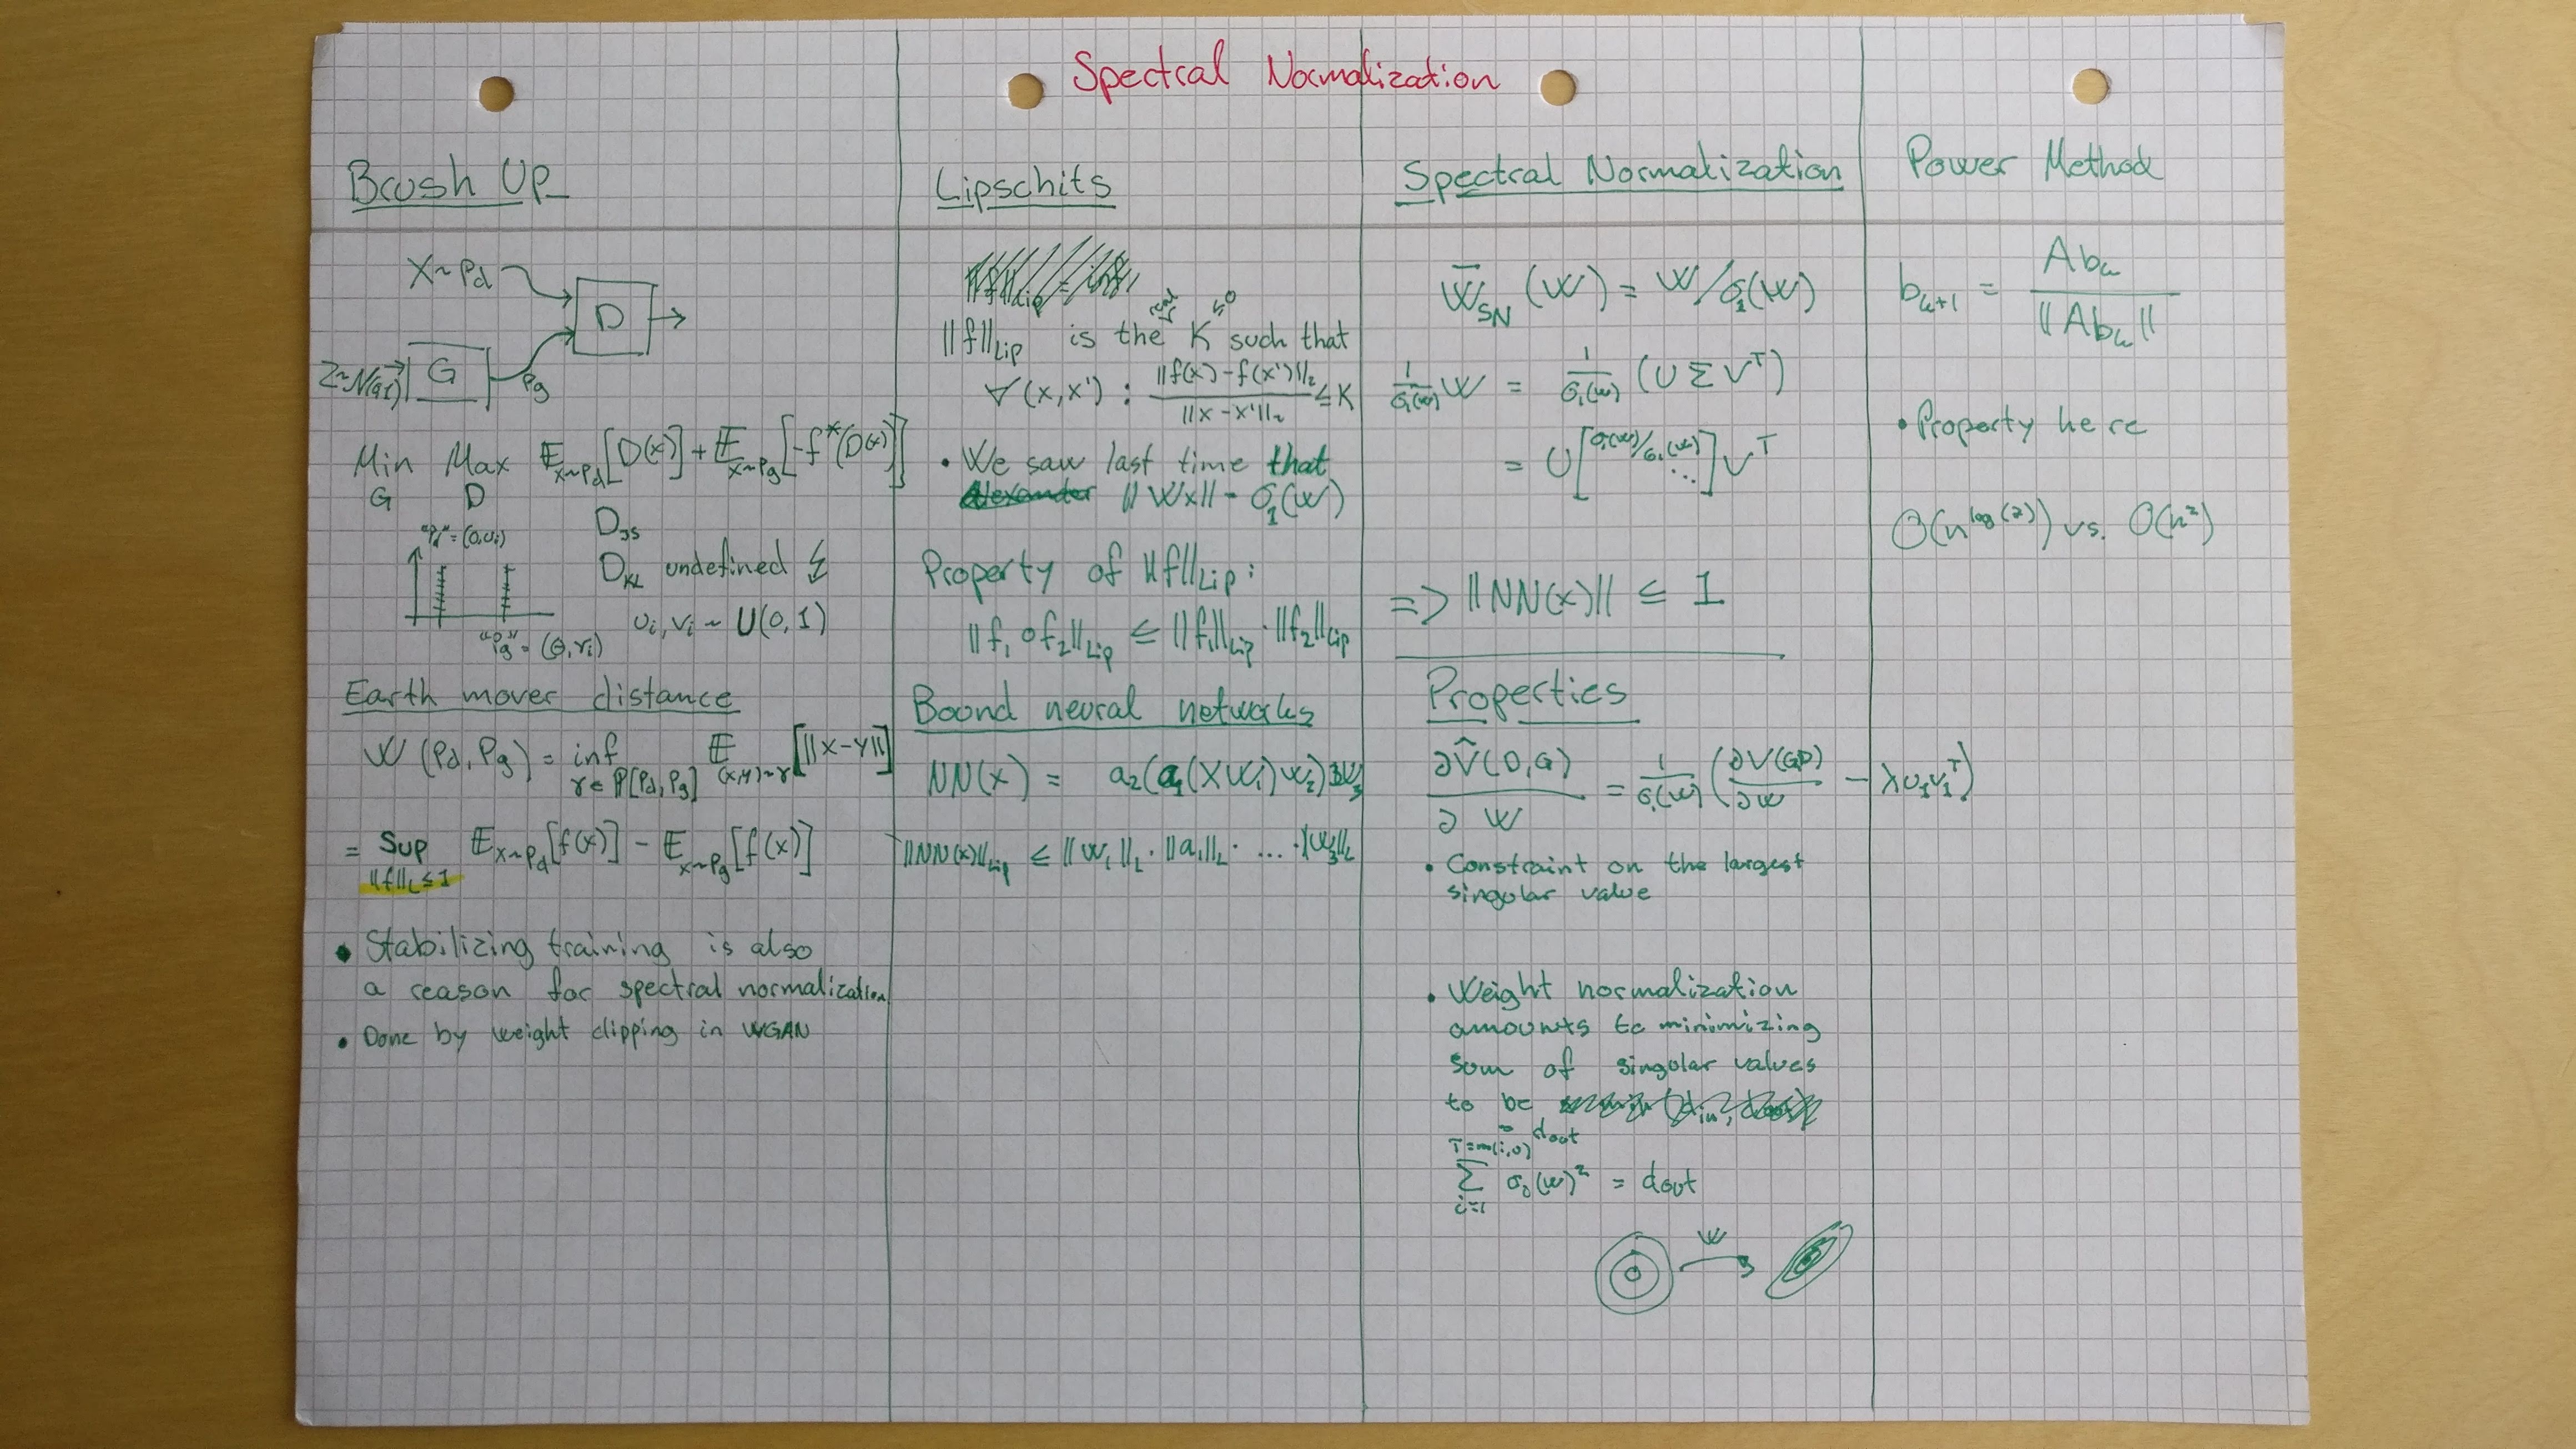 Spectral Normalization
Brush Up
X~Pd
D
Z~N(0,1)
G
Pg
Min Max 𝔼x~Pd[D(x)] + 𝔼x~Pg[-f*(D(x))]
G D
"Pd" = (0,Ui)
DJS
DKL undefined ↯
"Pg" = (θ,vi)
Ui, Vi ~ U(0,1)
Earth mover distance
W(Pd, Pg) = inf γ∈ℙ[Pd,Pg] 𝔼(x,y)~γ[||x-y||]
= Sup ||f||L≤1 𝔼x~Pd[f(x)] - 𝔼x~Pg[f(x)]
• Stabilizing training is also
a reason for spectral normalization
• Done by weight clipping in WGAN
Lipschits
||f||Lip is the K such that
∀(x,x') : ||f(x)-f(x')||₂ / ||x-x'||₂ ≤ K
• We saw last time that
||Wx|| = σ₁(W)
Property of ||f||Lip:
||f₁ o f₂||Lip ≤ ||f₁||Lip · ||f₂||Lip
Bound neural networks
NN(x) = a₂(a₁(XW₁)W₂)W₃
||NN(x)||Lip ≤ ||W₁||L · ||a₁||L · ... · ||W₃||L
Spectral Normalization
W̄SN(W) = W/σ₁(W)
1/σ₁(W) W = 1/σ₁(W) (UΣVᵀ)
= U[σ₁(W)/σ₁(W) ⋱]Vᵀ
=> ||NN(x)|| ≤ 1
Properties
∂V̂(D,G)/∂W = 1/σ₁(W) (∂V(G,D)/∂W - λu₁v₁ᵀ)
• Constraint on the largest
singular value
• Weight normalization
amounts to minimizing
sum of singular values
to be
dout
T=m(i,o)
Σ σi(W)² = dout
i=1
W
Power Method
bk+1 = Abk / ||Abk||
• Property here
O(n^log(7)) vs. O(n²)